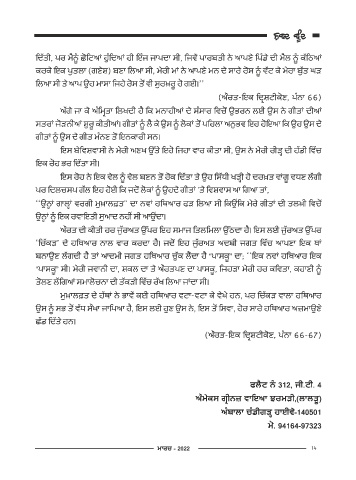 ਨਵਾਂ ਦੌਰ
ਦਿੱਤੀ, ਪਰ ਮੈਨੂੰ ਛੋਟਿਆਂ ਹੁੰਦਿਆਂ ਹੀ ਇੰਜ ਜਾਪਦਾ ਸੀ, ਜਿਵੇਂ ਪਾਰਬਤੀ ਨੇ ਆਪਣੇ ਪਿੰਡੇ ਦੀ ਮੈਲ ਨੂੰ ਕੱਠਿਆਂ
ਕਰਕੇ ਇਕ ਪੁਤਲਾ (ਗਣੇਸ਼) ਬਣਾ ਲਿਆ ਸੀ, ਮੇਰੀ ਮਾਂ ਨੇ ਆਪਣੇ ਮਨ ਦੇ ਸਾਰੇ ਰੋਸ ਨੂੰ ਵੱਟ ਕੇ ਮੇਰਾ ਬੁੱਤ ਘੜ
ਲਿਆ ਸੀ ਤੇ ਆਪ ਉਹ ਮਾਸਾ ਜਿਹੇ ਰੋਸ ਤੋਂ ਵੀ ਸੁਰਖ਼ਰੂ ਹੋ ਗਈ।''
(ਔਰਤ-ਇਕ ਦ੍ਰਿਸ਼ਟੀਕੋਣ, ਪੰਨਾ 66)
ਅੱਗੇ ਜਾ ਕੇ ਅੰਮ੍ਰਿਤਾ ਲਿਖਦੀ ਹੈ ਕਿ ਮਨਾਹੀਆਂ ਦੇ ਸੰਸਾਰ ਵਿਚੋਂ ਉਭਰਨ ਲਈ ਉਸ ਨੇ ਗੀਤਾਂ ਦੀਆਂ
ਸਤਰਾਂ ਜੋੜਨੀਆਂ ਸ਼ੁਰੂ ਕੀਤੀਆਂ। ਗੀਤਾਂ ਨੂੰ ਲੈ ਕੇ ਉਸ ਨੂੰ ਲੋਕਾਂ ਤੋਂ ਪਹਿਲਾ ਅਨੁਭਵ ਇਹ ਹੋਇਆ ਕਿ ਉਹ ਉਸ ਦੇ
ਗੀਤਾਂ ਨੂੰ ਉਸ ਦੇ ਗੀਤ ਮੰਨਣ ਤੋਂ ਇਨਕਾਰੀ ਸਨ।
ਇਸ ਬੇਵਿਸਵਾਸੀ ਨੇ ਮੇਰੀ ਅਣਖ ਉੱਤੇ ਇਹੋ ਜਿਹਾ ਵਾਰ ਕੀਤਾ ਸੀ, ਉਸ ਨੇ ਮੇਰੀ ਰੀੜ੍ਹ ਦੀ ਹੱਡੀ ਵਿੱਚ
ਇਕ ਰੋਹ ਭਰ ਦਿੱਤਾ ਸੀ।
ਇਸ ਰੋਹ ਨੇ ਇਕ ਵੇਲ ਨੂੰ ਵੇਲ ਬਣਨ ਤੋਂ ਰੋਕ ਦਿੱਤਾ ਤੇ ਉਹ ਸਿੱਧੀ ਖੜ੍ਹੀ ਹੋ ਦਰਖ਼ਤ ਵਾਂਗੂ ਵਧਣ ਲੱਗੀ
ਪਰ ਦਿਲਚਸਪ ਗੱਲ ਇਹ ਹੋਈ ਕਿ ਜਦੋਂ ਲੋਕਾਂ ਨੂੰ ਉਹਦੇ ਗੀਤਾਂ 'ਤੇ ਵਿਸਵਾਸ ਆ ਗਿਆ ਤਾਂ,
''ਉਨ੍ਹਾਂ ਗਾਲ੍ਹਾਂ ਵਰਗੀ ਮੁਖ਼ਾਲਫ਼ਤ'' ਦਾ ਨਵਾਂ ਹਥਿਆਰ ਫੜ ਲਿਆ ਸੀ ਕਿਉਂਕਿ ਮੇਰੇ ਗੀਤਾਂ ਦੀ ਤਲਖ਼ੀ ਵਿਚੋਂ
ਉਨ੍ਹਾਂ ਨੂੰ ਇਕ ਰਵਾਇਤੀ ਸੁਆਦ ਨਹੀਂ ਸੀ ਆਉਂਦਾ।
ਔਰਤ ਦੀ ਕੀਤੀ ਹਰ ਜੁੱਰਅਤ ਉੱਪਰ ਇਹ ਸਮਾਜ ਤਿਲਮਿਲਾ ਉੱਠਦਾ ਹੈ। ਇਸ ਲਈ ਜੁੱਰਅਤ ਉੱਪਰ
'ਚਿੱਕੜ' ਦੇ ਹਥਿਆਰ ਨਾਲ ਵਾਰ ਕਰਦਾ ਹੈ। ਜਦੋਂ ਇਹ ਜੁੱਰਅਤ ਅਦਬੀ ਜਗਤ ਵਿੱਚ ਆਪਣਾ ਇਕ ਥਾਂ
ਬਨਾਉਣ ਲੱਗਦੀ ਹੈ ਤਾਂ ਆਦਮੀ ਜਗਤ ਹਥਿਆਰ ਚੁੱਕ ਲੈਂਦਾ ਹੈ 'ਪਾਸਕੂ' ਦਾ, ''ਇਕ ਨਵਾਂ ਹਥਿਆਰ ਇਕ
'ਪਾਸਕੂ' ਸੀ। ਮੇਰੀ ਜਵਾਨੀ ਦਾ, ਸ਼ਕਲ ਦਾ ਤੇ ਔਰਤਪਣ ਦਾ ਪਾਸਕੂ, ਜਿਹੜਾ ਮੇਰੀ ਹਰ ਕਵਿਤਾ, ਕਹਾਣੀ ਨੂੰ
ਤੋਲਣ ਲੱਗਿਆਂ ਸਮਾਲੋਚਨਾ ਦੀ ਤੱਕੜੀ ਵਿੱਚ ਰੱਖ ਲਿਆ ਜਾਂਦਾ ਸੀ।
ਮੁਖ਼ਾਲਫ਼ਤ ਦੇ ਹੱਥਾਂ ਨੇ ਭਾਵੇਂ ਕਈ ਹਥਿਆਰ ਵਟਾ-ਵਟਾ ਕੇ ਵੇਖੇ ਹਨ, ਪਰ ਚਿੱਕੜ ਵਾਲਾ ਹਥਿਆਰ
ਉਸ ਨੂੰ ਸਭ ਤੋਂ ਵੱਧ ਸੌਖਾ ਜਾਪਿਆ ਹੈ, ਇਸ ਲਈ ਹੁਣ ਉਸ ਨੇ, ਇਸ ਤੋਂ ਸਿਵਾ, ਹੋਰ ਸਾਰੇ ਹਥਿਆਰ ਅਜ਼ਮਾਉਣੇ
ਛੱਡ ਦਿੱਤੇ ਹਨ।
(ਔਰਤ-ਇਕ ਦ੍ਰਿਸ਼ਟੀਕੋਣ, ਪੰਨਾ 66-67)
ਫਲੈਟ ਨੰ 312, ਜੀ.ਟੀ. 4
ਔਮੇਕਸ ਗ੍ਰੀਨਜ਼ ਵਾਇਆ ਝਰਮੜੀ,(ਲਾਲੜੂ)
ਅੰਬਾਲਾ ਚੰਡੀਗੜ੍ਹ ਹਾਈਵੇ-140501
ਮੋ. 94164-97323
ਮਾਰਚ - 2022